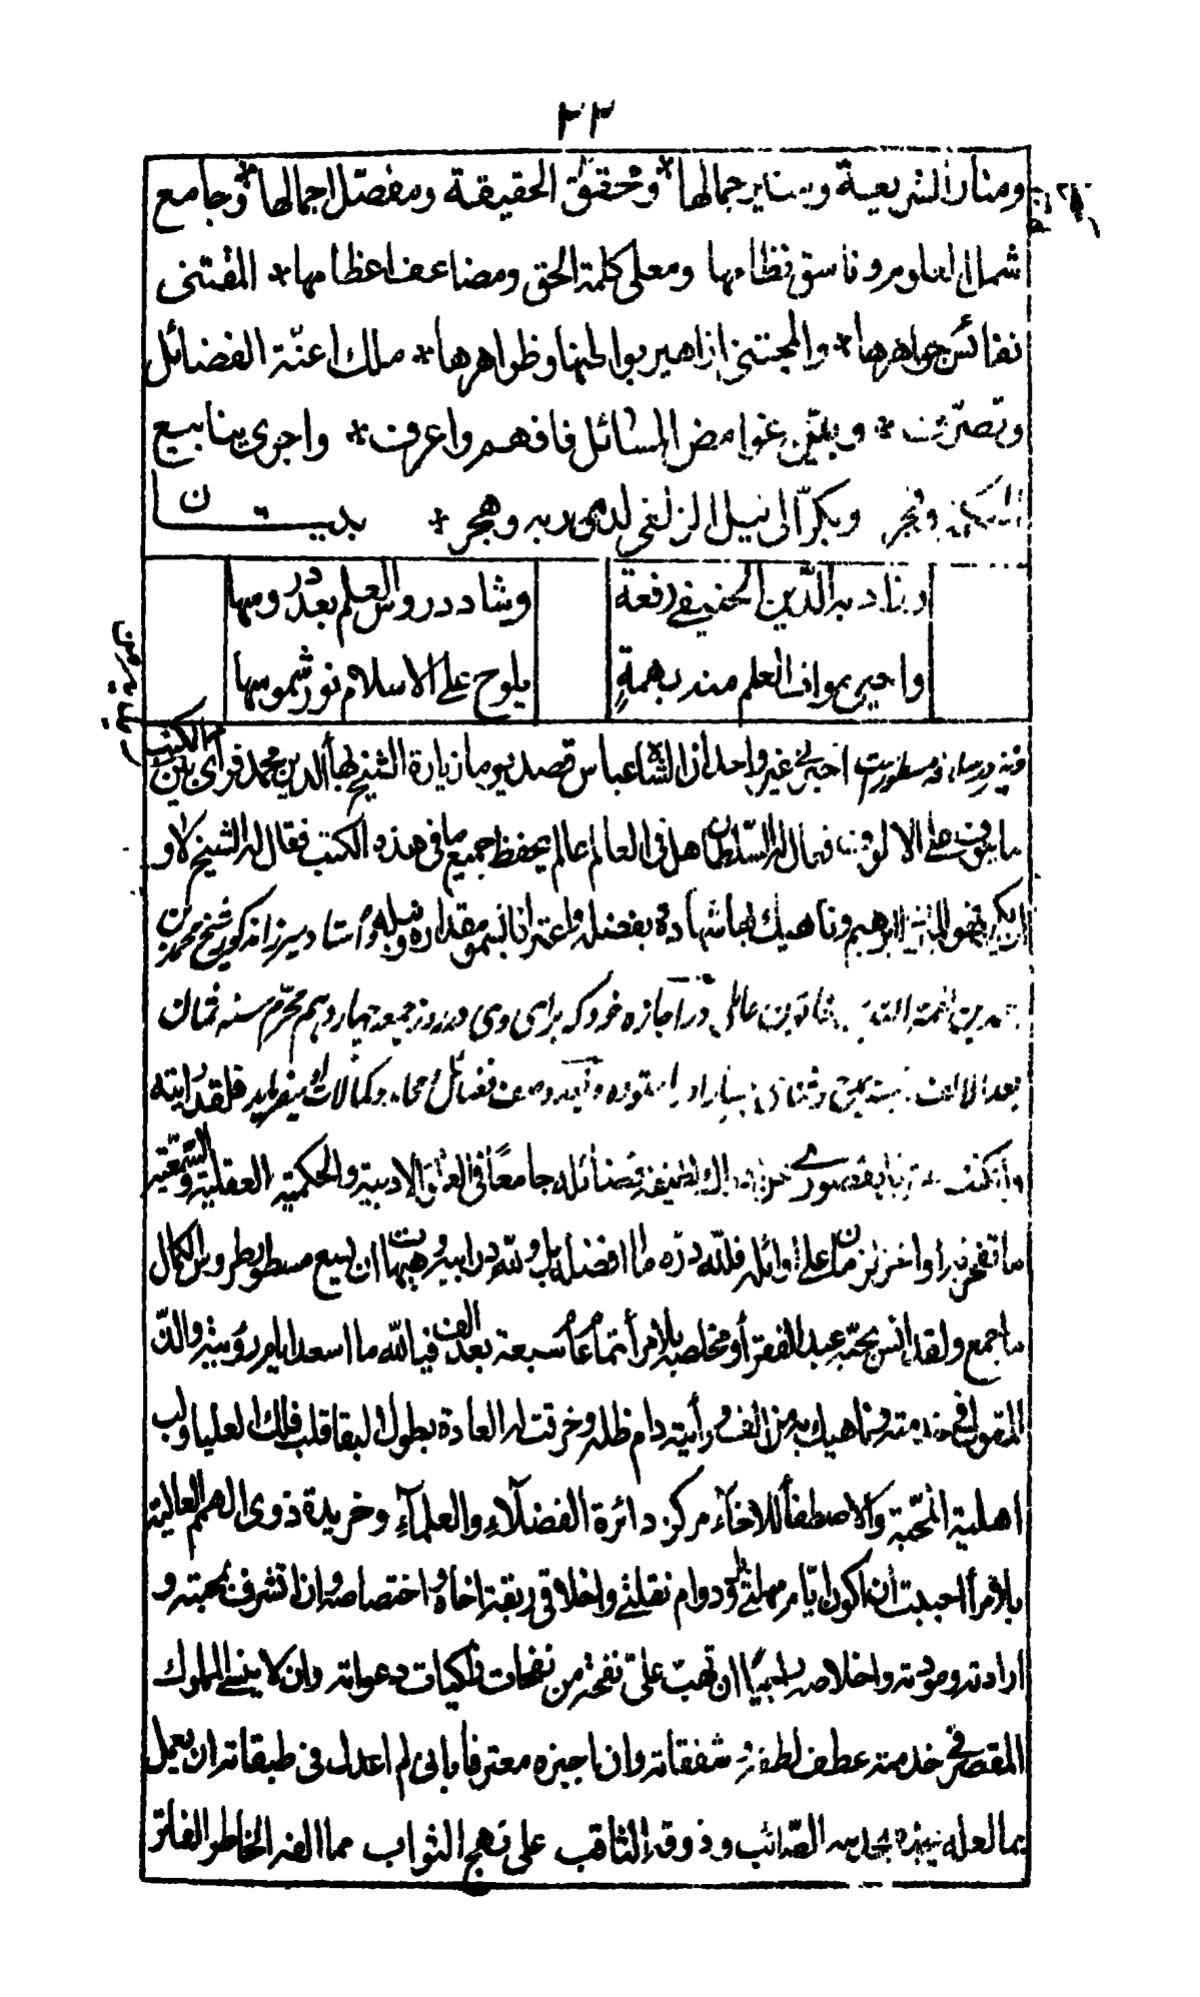 ٢٣
ومنار الشريعة ومنير جمالها * ومحقق الحقيقة ومفصل اجمالها * وجامع
شمل العلوم وناسق نظامها ومعلى كلمة الحق ومضاعف اعظامها * المقتنى
نفائس جواهرها * والمجتنى ازاهير بواطنها وظواهرها * ملك اعنّة الفضائل
وتصرّف * وبيّن غوامض المسائل فافهم واعرف * واجرى ينابيع
الحكمة وفجر وبكر الى نيل الزلفى لدى ربه وهجر * بيتان
وزاد به الدّين الحنيفى رفعة
وشاد دروس العلم بعد دروسها
واحيى موات العلم منه بهمةٍ
يلوح على الاسلام نور شموسها
اخبرنى غير واحد ان الشاه عباس قصد يوما زيارة الشيخ بهاء الدين محمد فرأى بين الكتب
ما ينوف على الالوف فقال له السّلطان هل فى العالم عالم يحفظ جميع ما فى هذه الكتب فقال له الشيخ لا و
ان يكن فهو الميرزا ابرهيم وناهيك بها شهادة بفضله واعترافا بسمو مقداره ونبله واستاد ميرزا مذكور شيخ محمد بن
احمد بن نعمة الله بن خاتون عاملى در اجازه خود كه براى وى در روز جمعه چهاردهم محرّم سنه ثمان
بعد الالف فضائل و محامد و كمالات او ميفرمايد فلقد رايته
فضائله جامعًا فى العلوم الادبية والحكمية العقلية والسّمعية
ما تفخر به اواخر زمان على اوائله فللّه درّه ما افضله بل ولله در ابيه وهيهات ان يسع مسطور طروس الكمال
ما جمع ولقد انس بمحبّته عبد الفقراء ومخلصه بلا مراء تمام عام سبعة بعد الالف فيا للّه ما اسعد ايام رؤيته والذّ
المثول فى خدمته وناهيك به من الف ورأيته دام ظله وخرقت له العادة بطول البقا قلب فلك العليا ولب
اهلية المحبّة والاصطفاء للاخاء مركز دائرة الفضلاء والعلماء وخريدة ذوى الهمم العالية
بلا مراء احببت أن اكون ايّام مهلتى ودوام نقلتى واخلاقى ربقة اخاه واختصاصه وان اتشرف بمحبته و
ارادته ومودته واخلاصه راجيًا ان تهب علىّ نفحة من نفحات زكيات دعواته وان لا ينسى المملوك
المقصر فى خدمته عطف لطفه و شفقاته وان اجيزه معترفا بانى لم اعدل فى طبقاته ان يعمل
بما لعله يبرزه بحدسه الصّائب وذوقه الثاقب على نهج الثواب مما الفه الخاطر الفاتر